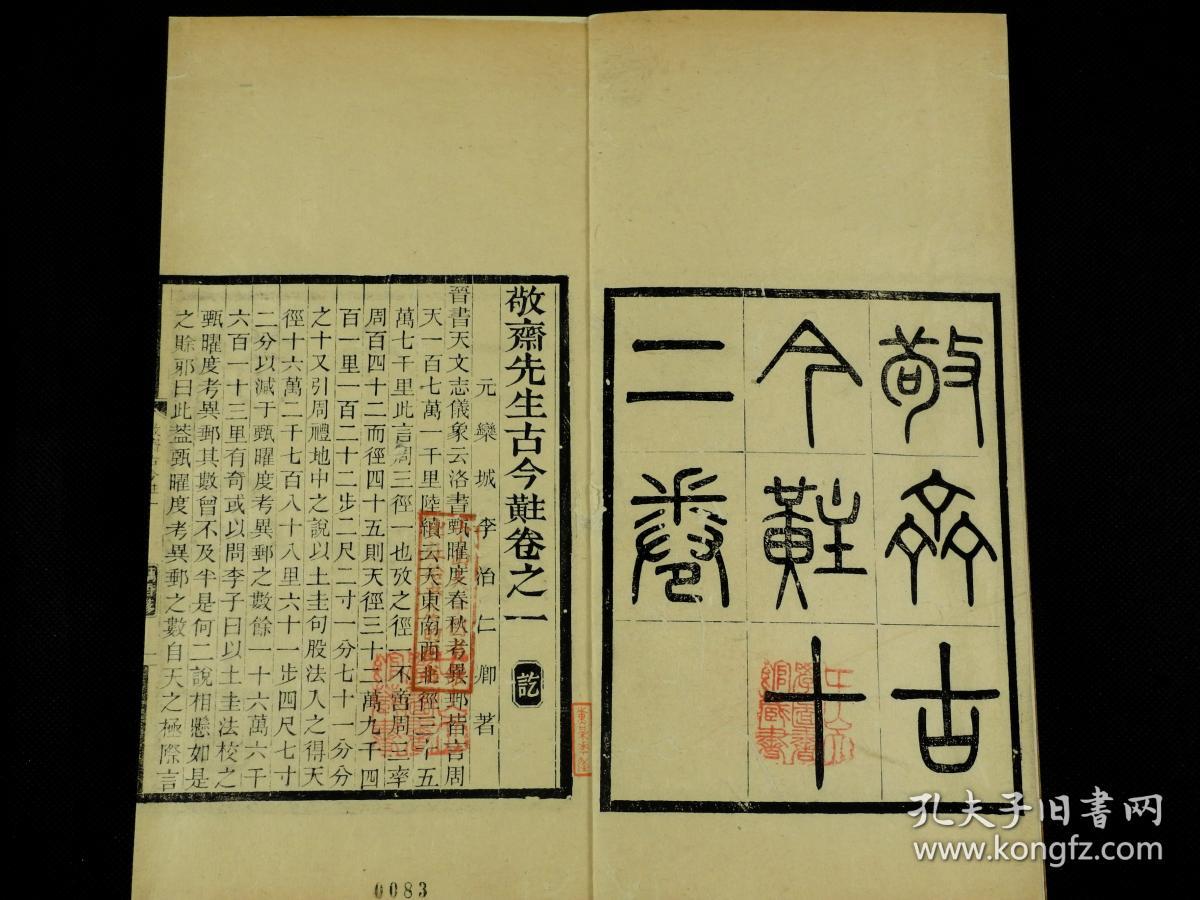 敬齋古
今黈十
二卷
敬齋先生古今黈卷之一
訖
元欒城李冶仁卿著
晉書天文志儀象云洛書甄曜度春秋考異郵皆言周
天一百七萬一千里陸績云天東南西北徑三十五
萬七千里此言周三徑一也攷之徑一不啻周三率
周百四十二而徑四十五則天徑三十二萬九千四
百一里一百二十二步二尺二寸一分七十一分分
之十又引周禮地中之說以土圭句股法入之得天
徑十六萬二千七百八十八里六十一步四尺七寸
二分以減于甄曜度考異郵之數餘一十六萬六千
六百一十三里有奇或以問李子曰以土圭法校之
甄曜度考異郵其數曾不及半是何二說相懸如是
之賒邪曰此蓋甄曜度考異郵之數自天之極際言
0083
孔夫子旧书网
www.kongfz.com